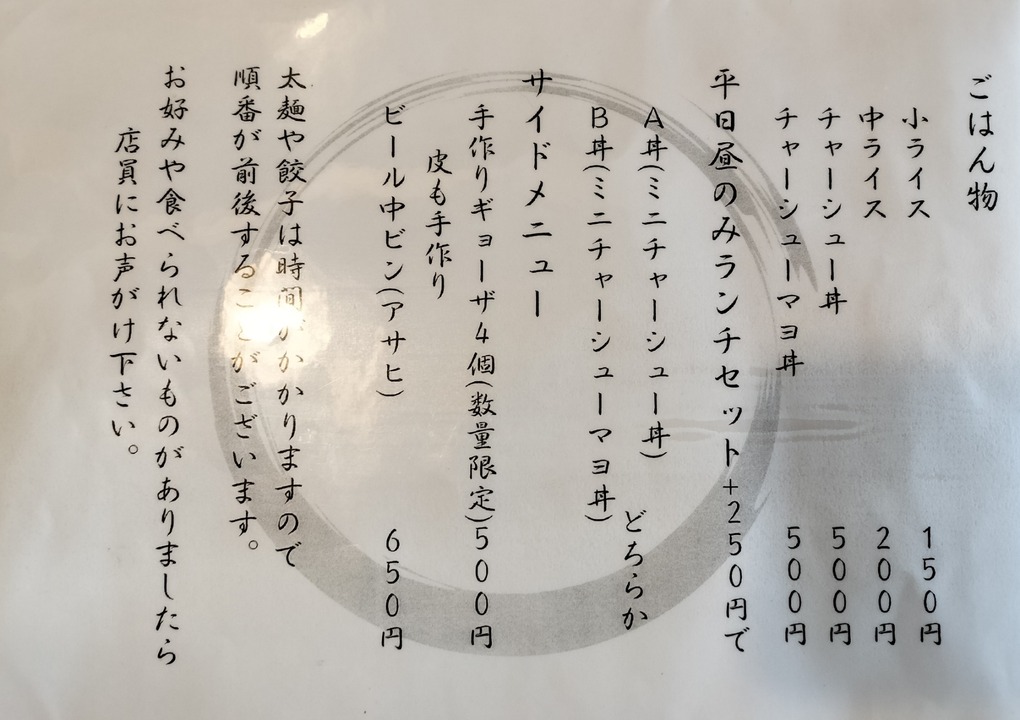 ごはん物
小ライス 150円
中ライス 200円
チャーシュー丼 500円
チャーシューマヨ丼 500円
平日昼のみランチセット+250円で
A丼(ミニチャーシュー丼)
どちらか
B丼(ミニチャーシューマヨ丼)
サイドメニュー
手作りギョーザ4個(数量限定)500円
皮も手作り
ビール中ビン(アサヒ) 650円
太麺や餃子は時間がかかりますので
順番が前後することがございます。
お好みや食べられないものがありましたら
店員にお声がけ下さい。